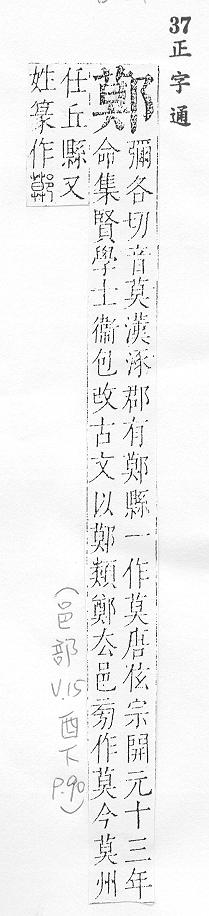 37 正字通
鄚
彌各切音莫漢涿郡有鄚縣一作莫唐伭宗開元十三年
命集賢學士衞包改古文以鄚類鄭厺邑㫄作莫今莫州
任丘縣又
姓篆作鄚
(邑部 V.15 酉下 P.90)